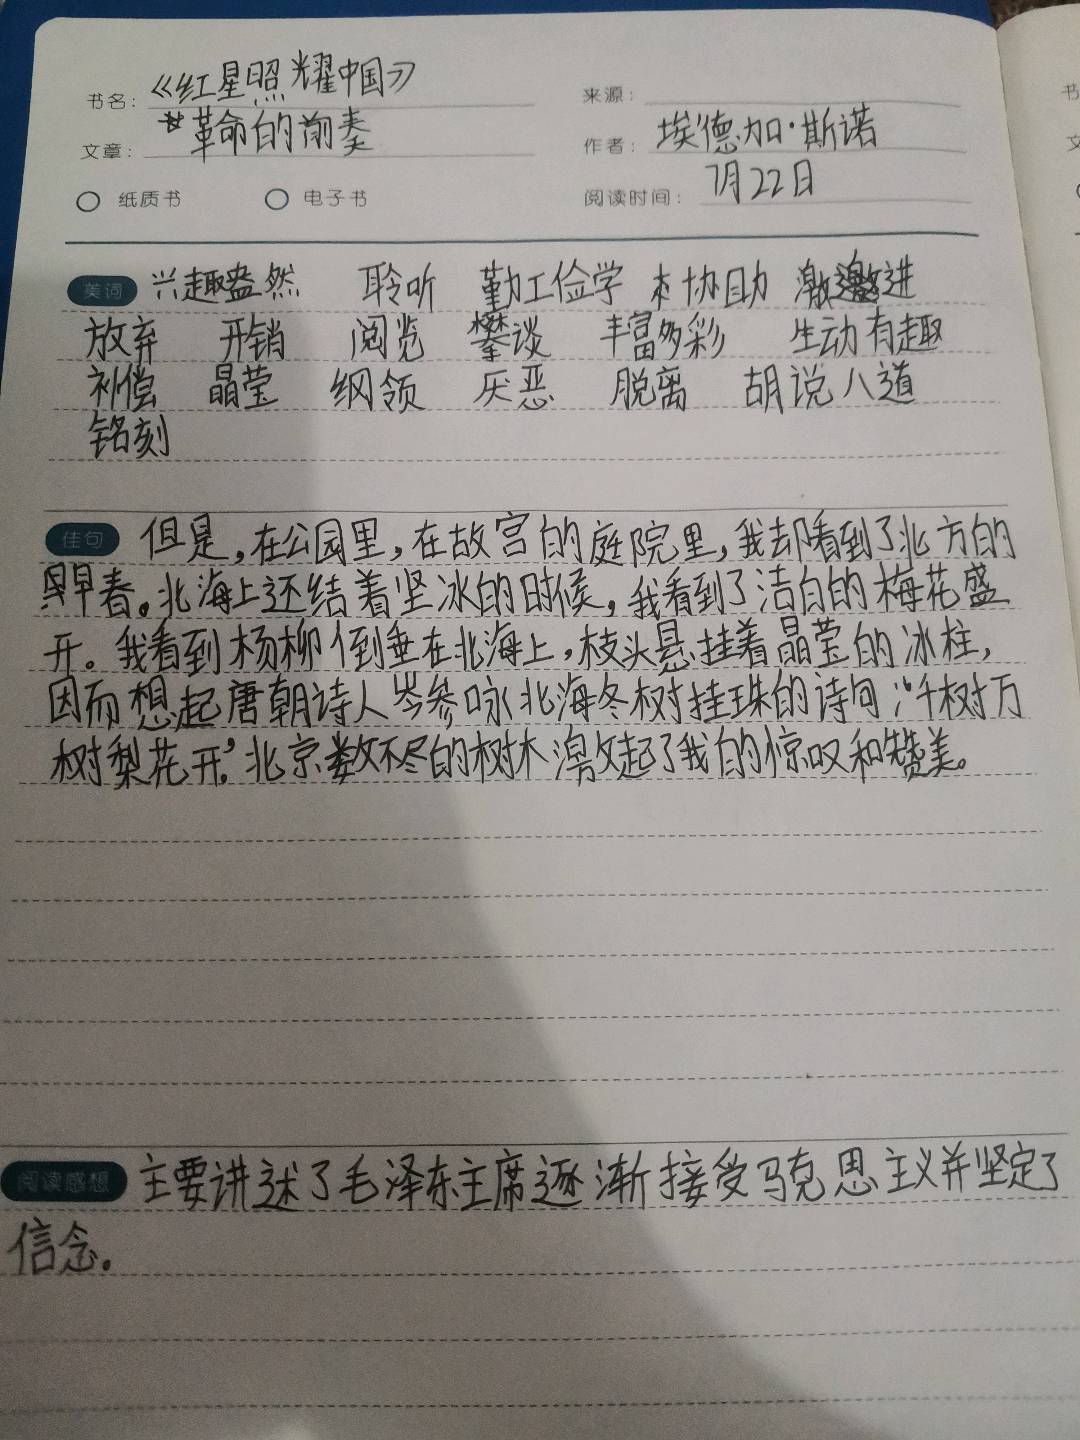 书名：《红星照耀中国》
来源：
文章：革命的前奏
作者：埃德加·斯诺
纸质书 电子书
阅读时间：7月22日
美词 兴趣盎然 聆听 勤工俭学 协助 激进
放弃 开销 阅览 攀谈 丰富多彩 生动有趣
补偿 晶莹 纲领 厌恶 脱离 胡说八道
铭刻
佳句 但是，在公园里，在故宫的庭院里，我却看到了北方的
早春。北海上还结着坚冰的时候，我看到了洁白的梅花盛
开。我看到杨柳倒垂在北海上，枝头悬挂着晶莹的冰柱，
因而想起唐朝诗人岑参咏北海冬树挂珠的诗句“千树万
树梨花开”北京数不尽的树木激起了我的惊叹和赞美。
阅读感想 主要讲述了毛泽东主席逐渐接受马克思主义并坚定了
信念。